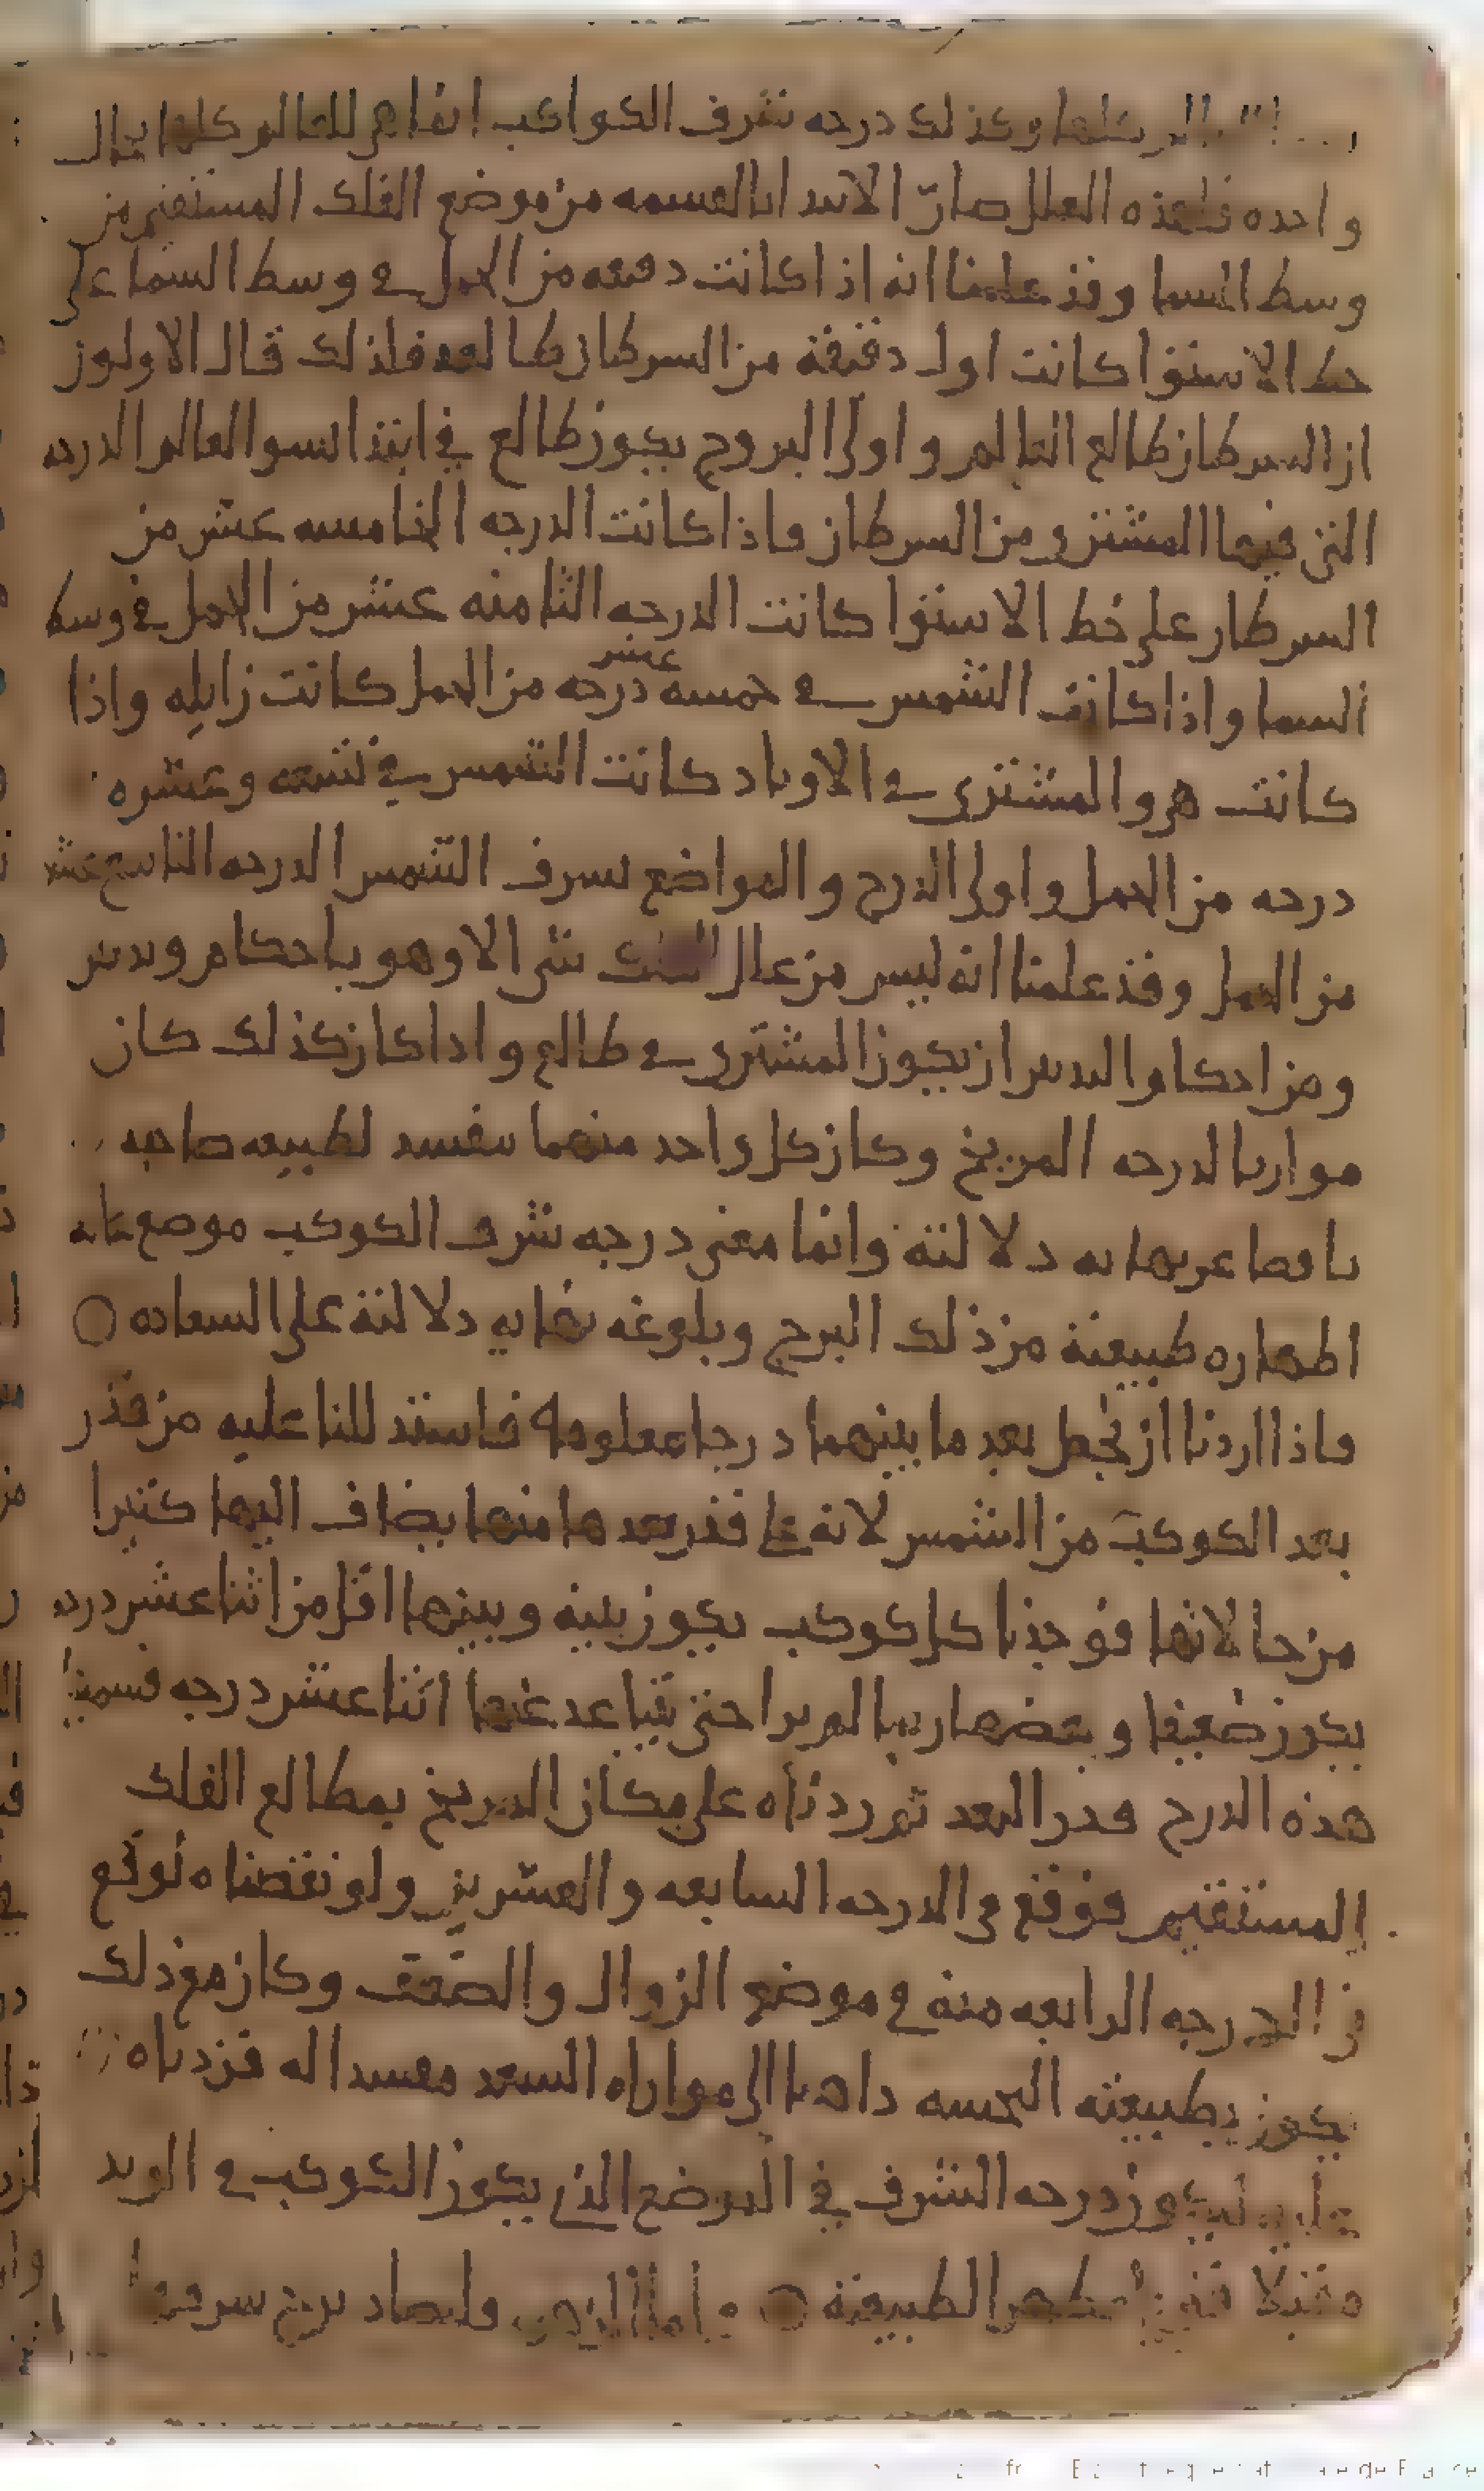 وكذلك درجه شرف الكواكب انما هى للعالم كله احال
واحده فلهذه العلل صار الابتدا بالقسمه من موضع الفلك المستقيم من
وسط السما وقد علمنا انه اذا كانت دقيقه من الحمل في وسط السما على
خط الاستوا كانت اول دقيقة من السرطان طالعه فلذلك قال الاولون
ان السرطان طالع العالم واولى البروج بكون طالع في ابتدا نمو العالم الدرجه
التى فيها المشترى من السرطان واذا كانت الدرجه الخامسه عشر من
السرطان على خط الاستوا كانت الدرجه الثامنه عشر من الحمل في وسط
السما واذا كانت الشمس في خمسه عشر درجه من الحمل كانت زايله واذا
كانت هى والمشترى في الاوتاد كانت الشمس في تسعه وعشره
درجه من الحمل واولى الدرج والمواضع بشرف الشمس الدرجه التاسع عشر
من الحمل وقد علمنا انه ليس من علل الفلك شى الا وهو باحكام وتدبير
ومن احكام التدبير ان يكون المشترى في طالع واذا كان كذلك كان
موازيا لدرجه المريخ وكان كل واحد منهما مفسد لطبيعه صاحبه
ناقصا عن نهايه دلالته وانما معنى درجه شرف الكوكب موضع غايه
اظهاره طبيعته من ذلك البرج وبلوغه نهايه دلالته على السعاده
فاذا اردنا ان نجعل بعد ما بينهما درجا معلومه فاستدللنا عليه من قدر
بعد الكوكب من الشمس لانه على قدر بعدها منها يضاف اليها كثيرا
من حالاتها فوجدنا كل كوكب يكون بينه وبينها اقل من اثنا عشر درجه
يكون ضعيفا وبعضها ربما لم يرا حتى يتباعد عنها اثنا عشر درجه فسمينا
هذه الدرج قدر البعد ثم زدناه على مكان المريخ بمطالع الفلك
المستقيم فوقع في الدرجه السابعه والعشرين ولو نقصناه لوقع
في الدرجه الرابعه منه في موضع الزوال والضعف وكان مع ذلك
يكون بطبيعته النحسه ذاهبا الى موازاه السعد مفسدا له فزدناه
عليه ليكون درجه الشرف في الموضع الذى يكون الكوكب في الوتد
الطبيعة واما الزهره فانها صار برج شرفها